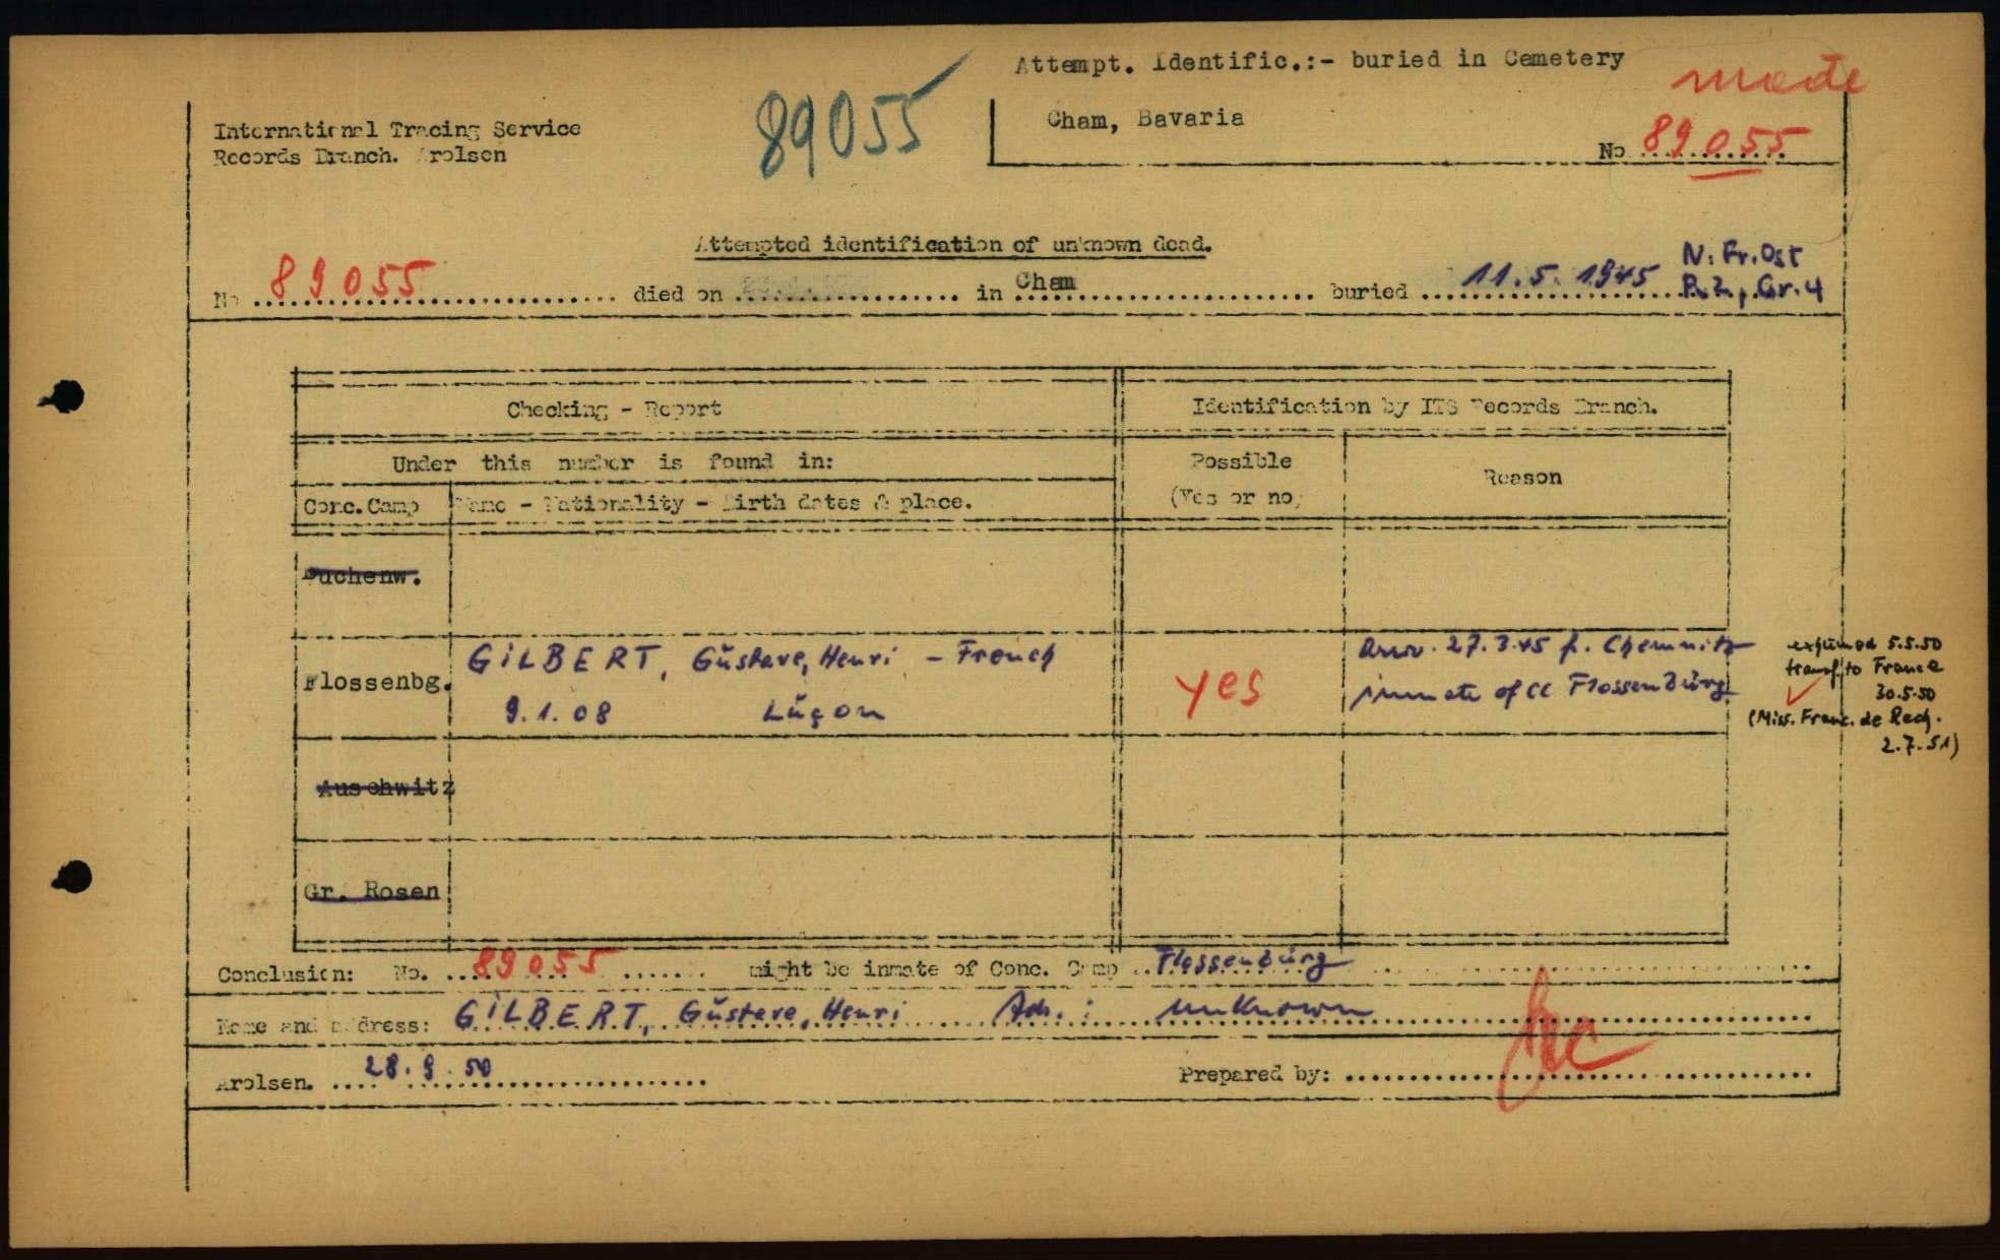 Attempt. Identific.:- buried in Cemetery
made
Cham, Bavaria
International Tracing Service
Records Branch. Arolsen
89055
No 89055
Attempted identification of unknown dead.
N. Fr. Ost
No 89055 died on in Cham buried 11.5.1945 R.2, Gr.4
Checking - Report
Identification by ITS Records Branch.
Under this number is found in:
Possible
(Yes or no)
Reason
Conc.Camp Name - Nationality - Birth dates & place.
Buchenw.
Flossenbg.
GILBERT, Gustave, Henri - French
9.1.08 Luçon
yes
arriv. 27.3.45 f. Chemnitz
inmate of CC Flossenbürg
exhumed 5.5.50
transf. to France
30.5.50
(Miss. Franc. de Rech.
2.7.51)
Auschwitz
Gr. Rosen
Conclusion: No. 89055 might be inmate of Conc. Camp Flossenbürg
Name and address: GILBERT, Gustave, Henri Adr.: unknown
Arolsen. 28.9.50 Prepared by: